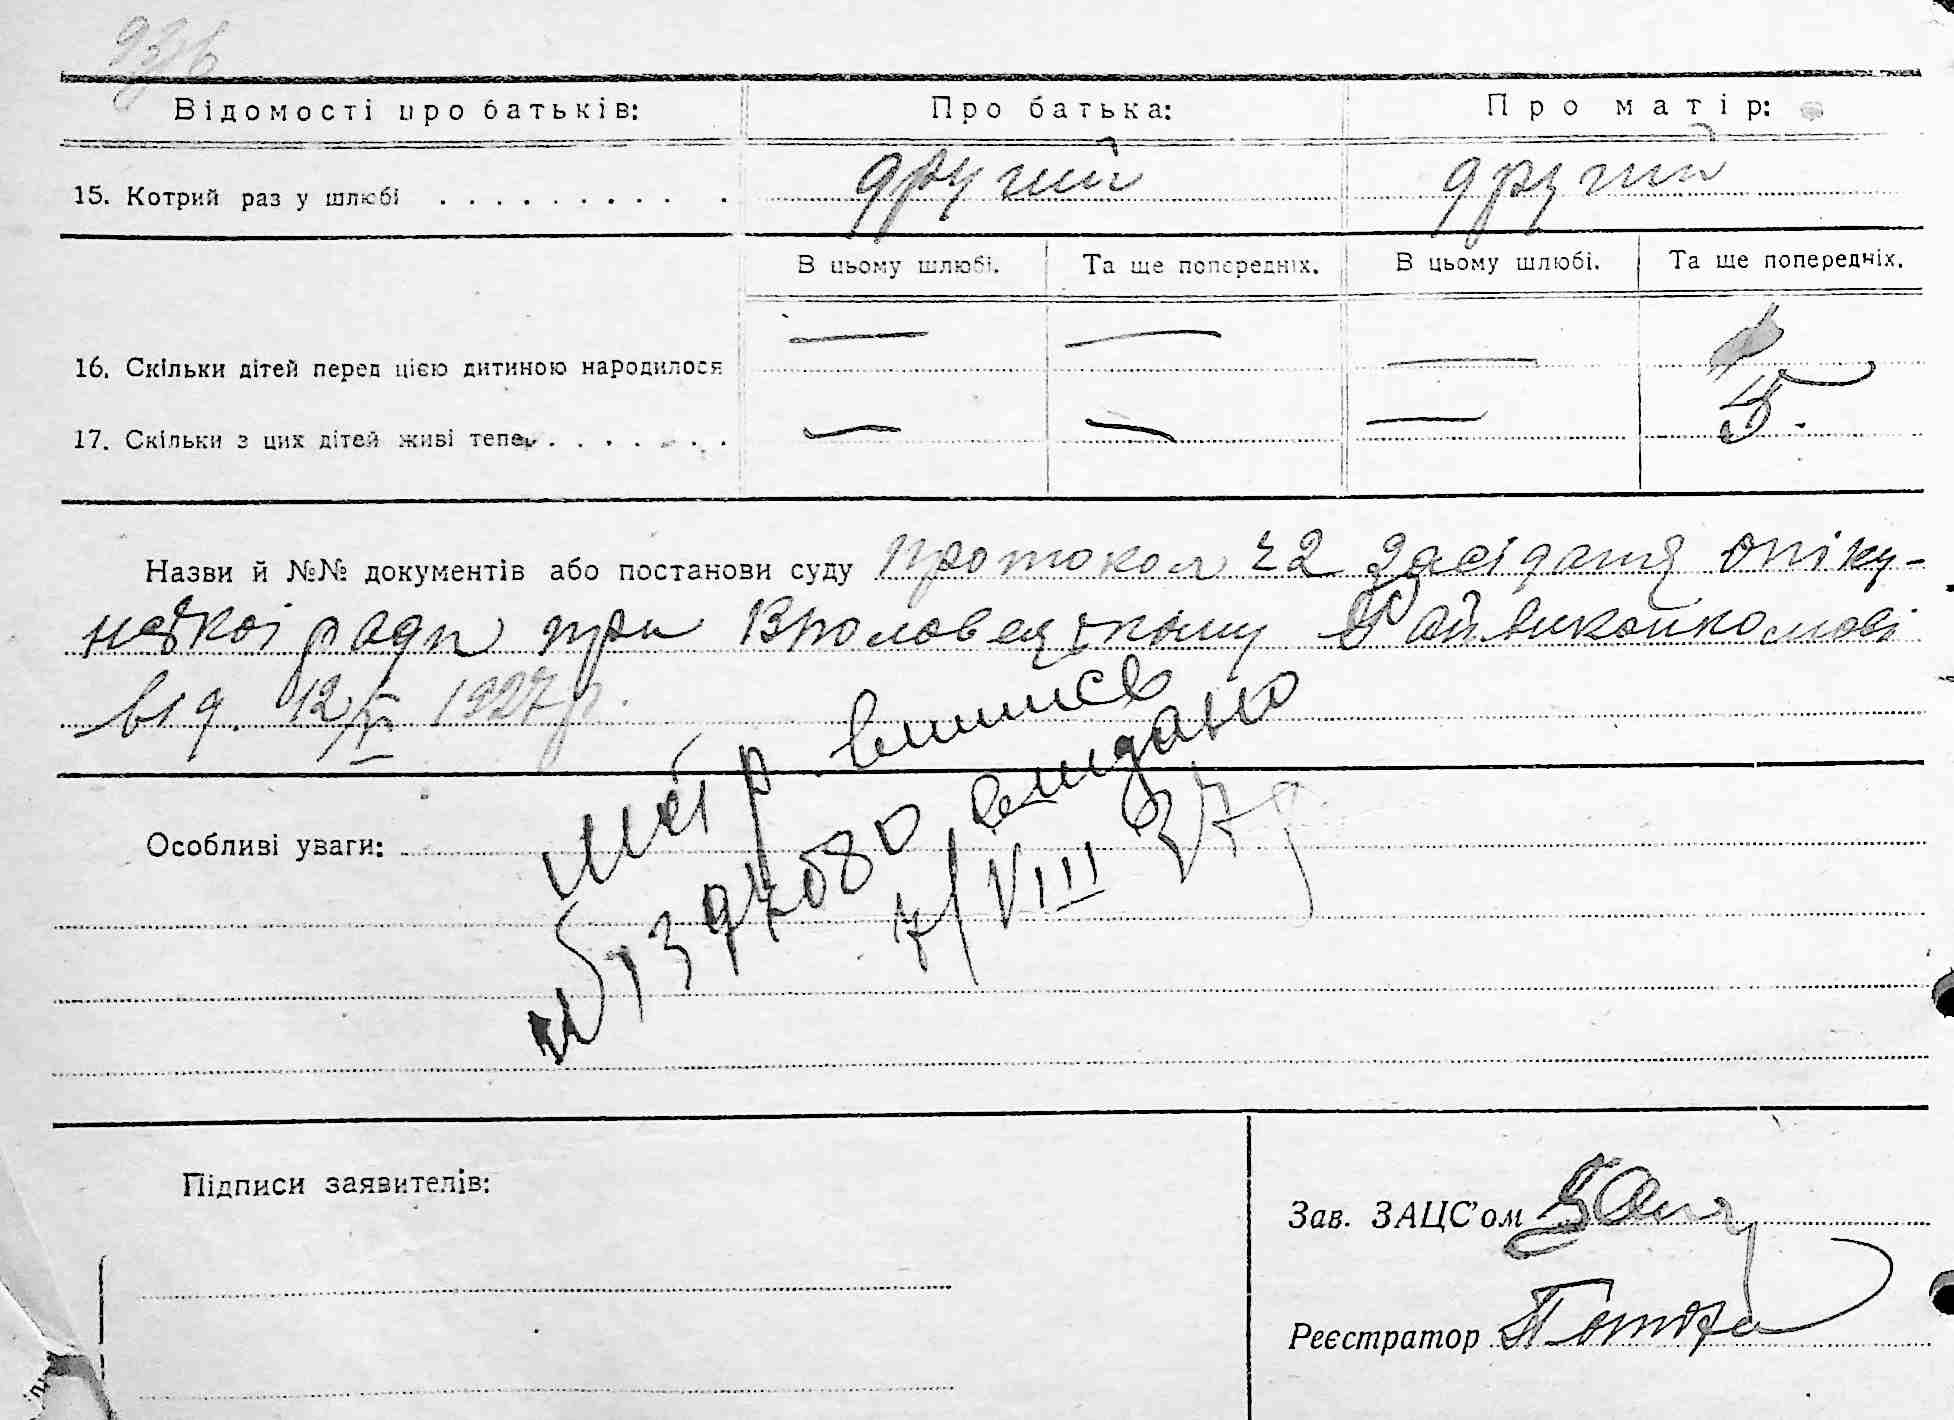 Відомості про батьків: Про батька: Про матір:
15. Котрий раз у шлюбі . . . . . . . . . . другий другий
В цьому шлюбі. Та ще попередніх. В цьому шлюбі. Та ще попередніх.
16. Скільки дітей перед цією дитиною народилося — — —
17. Скільки з цих дітей живі тепер . . . . . . . — — — 5.
Назви й №№ документів або постанови суду протокол ч 2 засіданя опіку-
нської ради при Кролевецькому Райвиконкомові
від. 12/X 1927 р.
метр. выпись
Особливі уваги:
397080 выдано
7/VIII 37 р
Підписи заявителів:
Зав. ЗАЦС’ом
Реєстратор